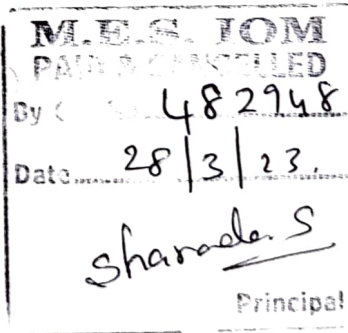 M.E.S. IOM
PAID & CANCELLED
By C 482948
Date 28/3/23.
Sharada. S
Principal